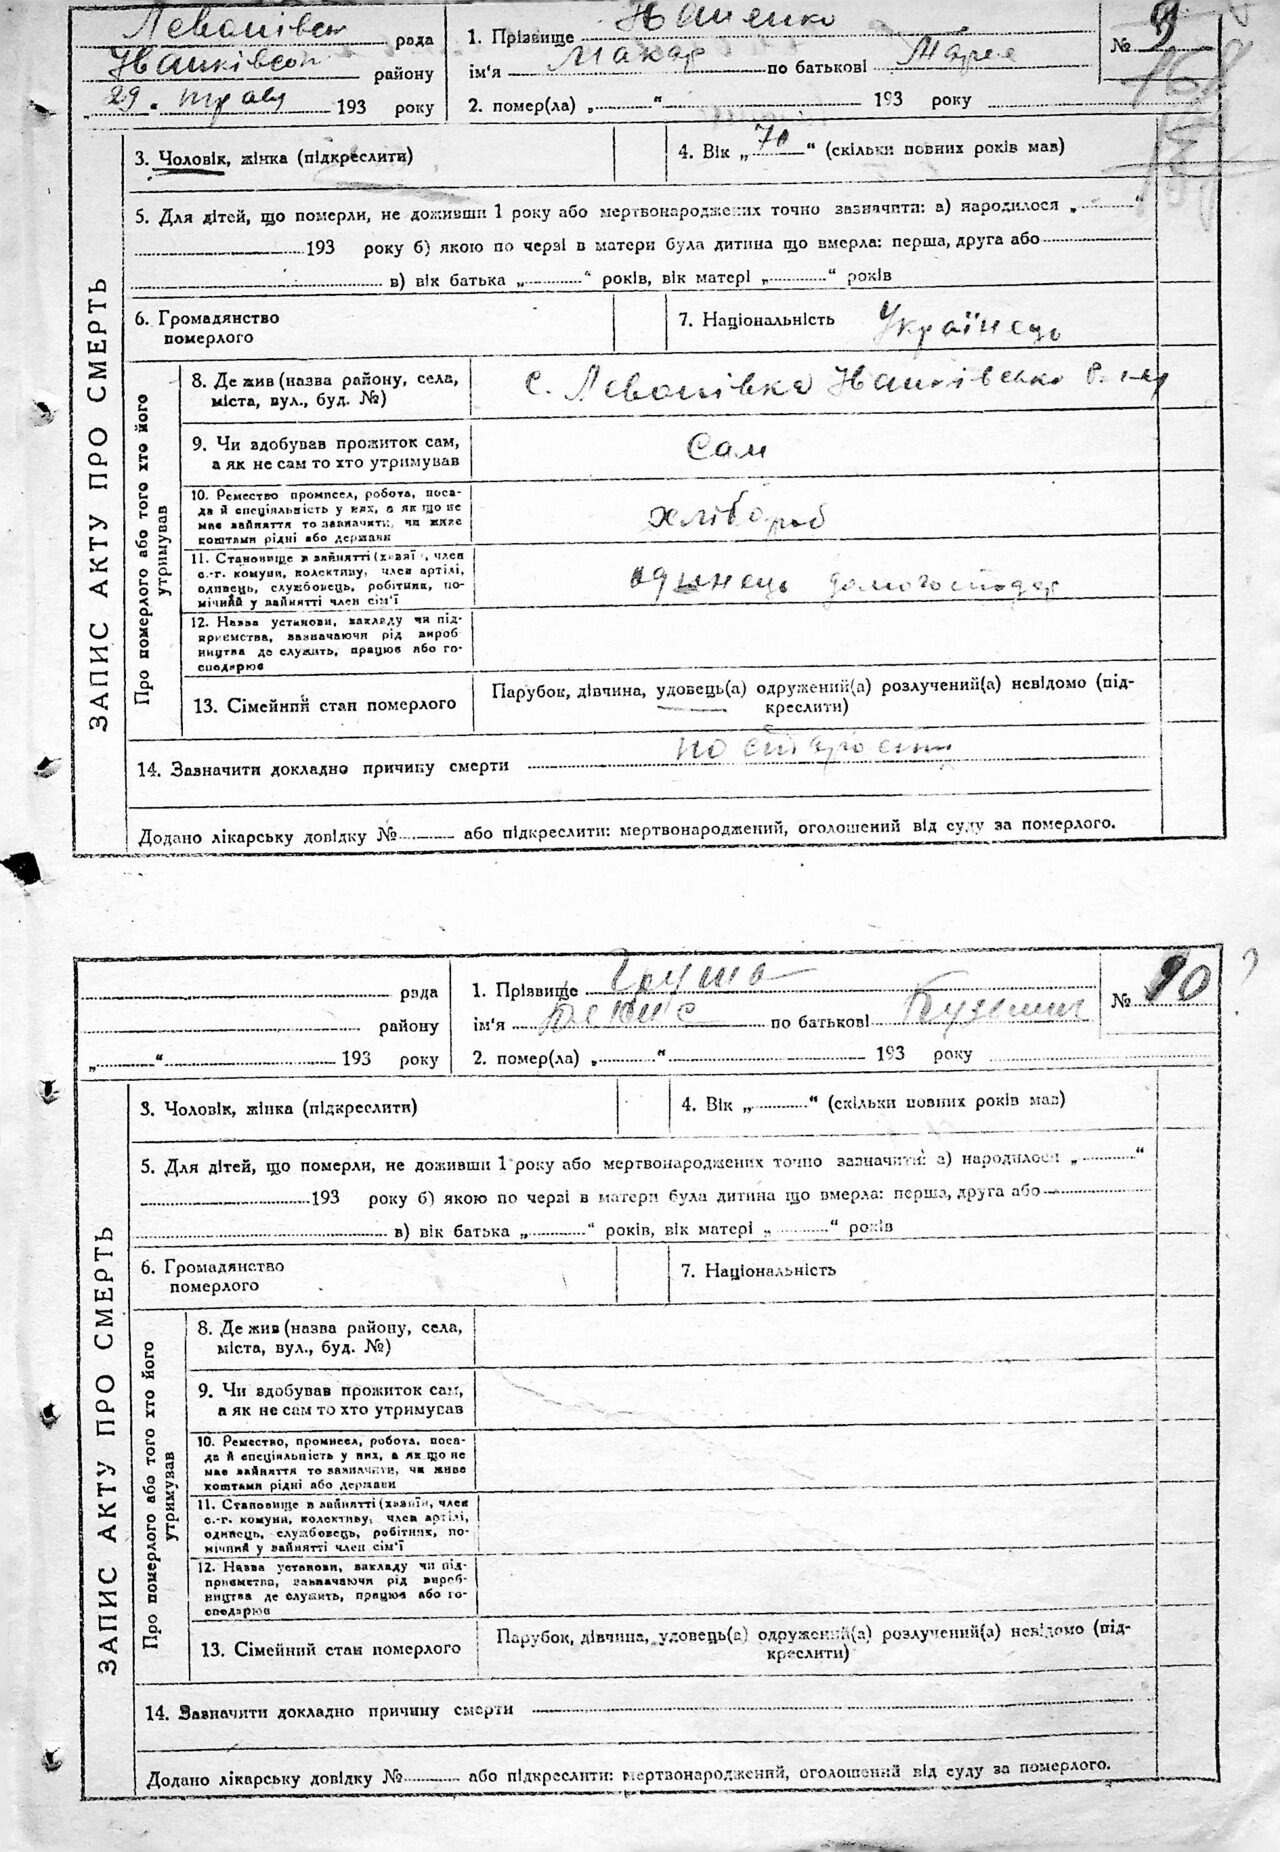 Левонівсk рада
Иванківсоn району
„29. трав 193 року
1. Прізвище Ианенко
ім'я Макар по батькові
2. помер(ла) „ “ 193 року
№ 9
168
3. Чоловік, жінка (підкреслити)
4. Вік „70“ (скільки повних років мав)
5. Для дітей, що померли, не доживши 1 року або мертвонароджених точно зазначити: а) народилося „ “
193 року б) якою по черзі в матери була дитина що вмерла: перша, друга або
в) вік батька „ “ років, вік матері „ “ років
6. Громадянство
померлого
7. Національність Українець
ЗАПИС АКТУ ПРО СМЕРТЬ
Про померлого або того хто його
утримував
8. Де жив (назва району, села,
міста, вул., буд. №)
с. Левонівка Иванківсько
9. Чи здобував прожиток сам,
а як не сам то хто утримував
Сам
10. Ремество промисел, робота, поса-
да й спеціяльність у них, а як що не
має зайняття то зазначити, чи живе
коштами рідні або держави
хлібороб
11. Становище в зайнятті (хазяї , член
с.-г. комуни, колективу, член артілі,
одинець, службовець, робітник, по-
мічний у зайнятті член сім'ї
одынець домогосподар
12. Назва установи, закладу чи під-
приємства, зазначаючи рід вироб
ництва де служить, працює або го-
сподарює
13. Сімейний стан померлого
Парубок, дівчина, удовець(а) одружений(а) розлучений(а) невідомо (під-
креслити)
14. Зазначити докладно причину смерти по старости
Додано лікарську довідку № або підкреслити: мертвонароджений, оголошений від суду за померлого.
рада
району
„ “ 193 року
1. Прізвище Груша
ім'я Денис по батькові Кузьмич
2. помер(ла) „ “ 193 року
№ 10
3. Чоловік, жінка (підкреслити)
4. Вік „ “ (скільки повних років мав)
5. Для дітей, що померли, не доживши 1 року або мертвонароджених точно зазначити: а) народилося „ “
193 року б) якою по черзі в матери була дитина що вмерла: перша, друга або
в) вік батька „ “ років, вік матері „ “ років
6. Громадянство
померлого
7. Національність
ЗАПИС АКТУ ПРО СМЕРТЬ
Про померлого або того хто його
утримував
8. Де жив (назва району, села,
міста, вул., буд. №)
9. Чи здобував прожиток сам,
а як не сам то хто утримував
10. Ремество, промисел, робота, поса-
да й спеціяльність у них, а як що не
має зайняття то зазначити, чи живе
коштами рідні або держави
11. Становище в зайнятті (хазяїн, член
с.-г. комуни, колективу, член артілі,
одинець, службовець, робітник, по-
мічний у зайнятті член сім'ї
12. Назва установи, закладу чи під-
приємства, зазначаючи рід вироб-
ництва де служить, працює або го-
сподарює
13. Сімейний стан померлого
Парубок, дівчина, удовець(а) одружений(а) розлучений(а) невідомо (під-
креслити)
14. Зазначити докладно причину смерти
Додано лікарську довідку № або підкреслити: мертвонароджений, оголошений від суду за померлого.